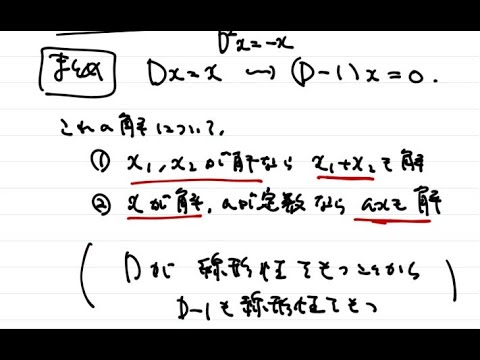 D²x=-x
まとめ Dx=x ⇝ (D-1)x=0.
これの解について、
① x₁,x₂が解なら x₁+x₂も解
② xが解、aが定数なら axも解
(Dが 線形性をもつことから
D-1も線形性をもつ)